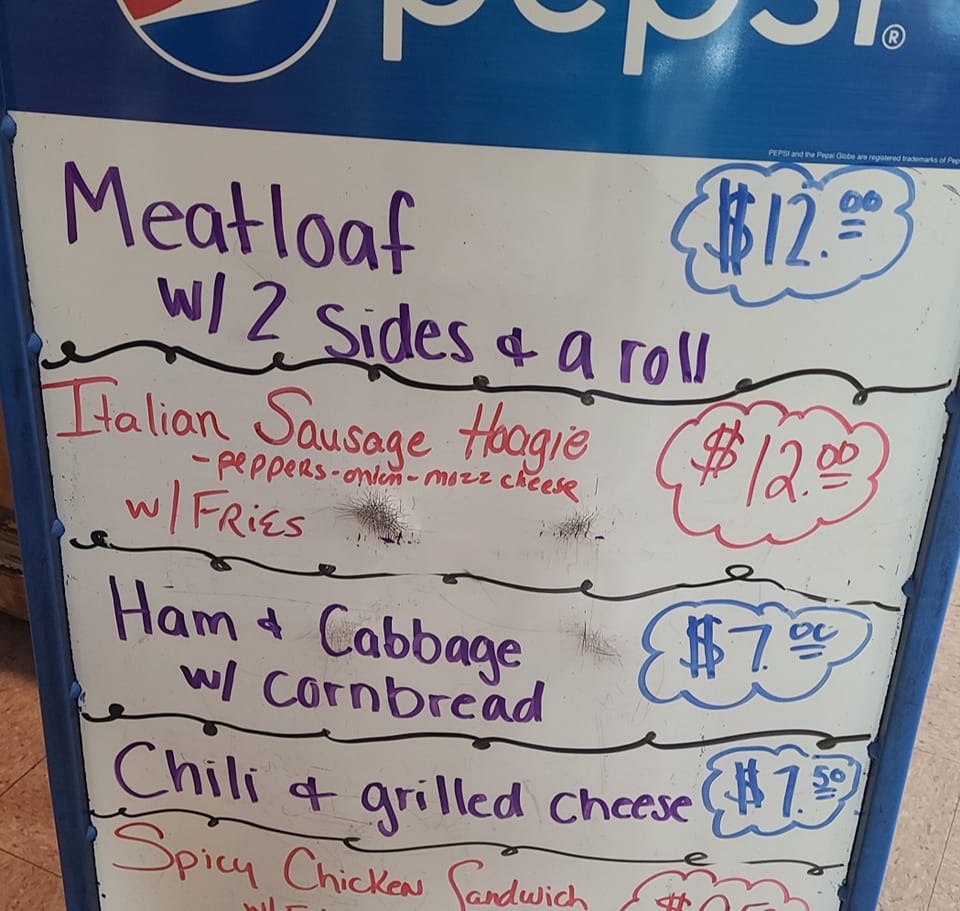 pepsi®
PEPSI and the Pepsi Globe are registered trademarks of
Meatloaf $12.00
w/ 2 sides & a roll
Italian Sausage Hoagie $12.00
-peppers-onion-mozz cheese
w/ FRIES
Ham & Cabbage $7.00
w/ cornbread
Chili & grilled cheese $7.50
Spicy Chicken Sandwich $
w/